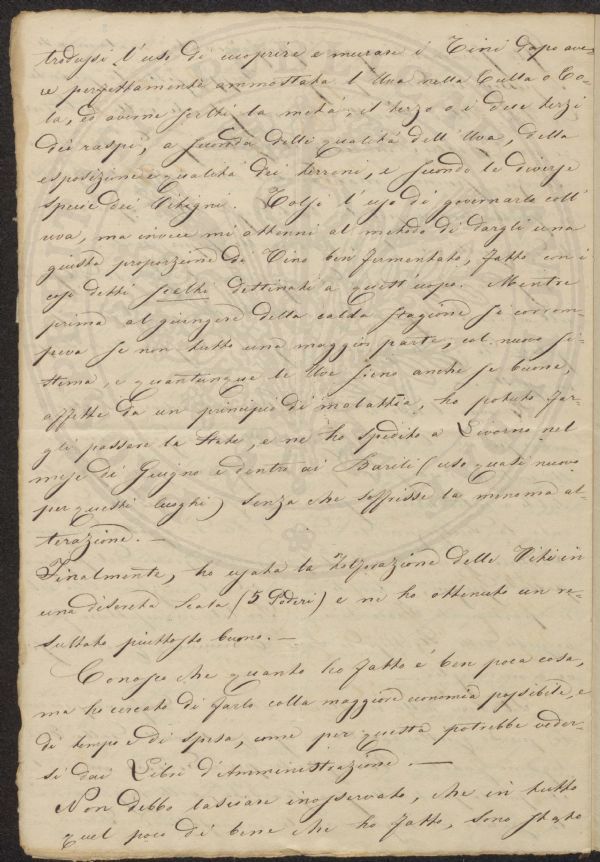 trodussi l'uso di cuoprire e murare i Tini dopo ave-
re perfettamente ammostata l'Uva nella Bulla o Co-
la, ed averne scelti la metà, il terzo o i due terzi
dei raspi, a seconda delle qualità dell'Uva, della
esposizione e qualità dei terreni, e secondo le diverse
specie dei Vitigni. Tolsi l'uso di governarlo coll'
uva, ma invece mi attenni al metodo di dargli una
giusta proporzione di Vino ben fermentato, fatto con i
così detti scelti destinati a quest'uopo. Mentre
prima al giungere della calda stagione si corrom-
peva se non tutto una maggior parte, col nuovo si-
stema, e quantunque le Uve sieno anche se buone,
affette da un principio di malattia, ho potuto far-
gli passare la State, e ne ho spedito a Livorno nel
mese di Giugno e dentro ai Barili (uso quasi nuovo
per questi luoghi) senza che soffrisse la minoma al-
terazione. —
Finalmente, ho usata la Zolforazione delle Viti in
una discreta Scala (5 Poderi) e ne ho ottenuto un re-
sultato piuttosto buono. —
Conosco che quanto ho fatto è ben poca cosa,
ma ho cercato di farlo colla maggiore economia possibile, e
di tempo e di spesa, come per questa potrebbe veder-
si dai Libri d'Amministrazione. —
Non debbo lasciare inosservato, che in tutto
quel poco di bene che ho fatto, sono stato